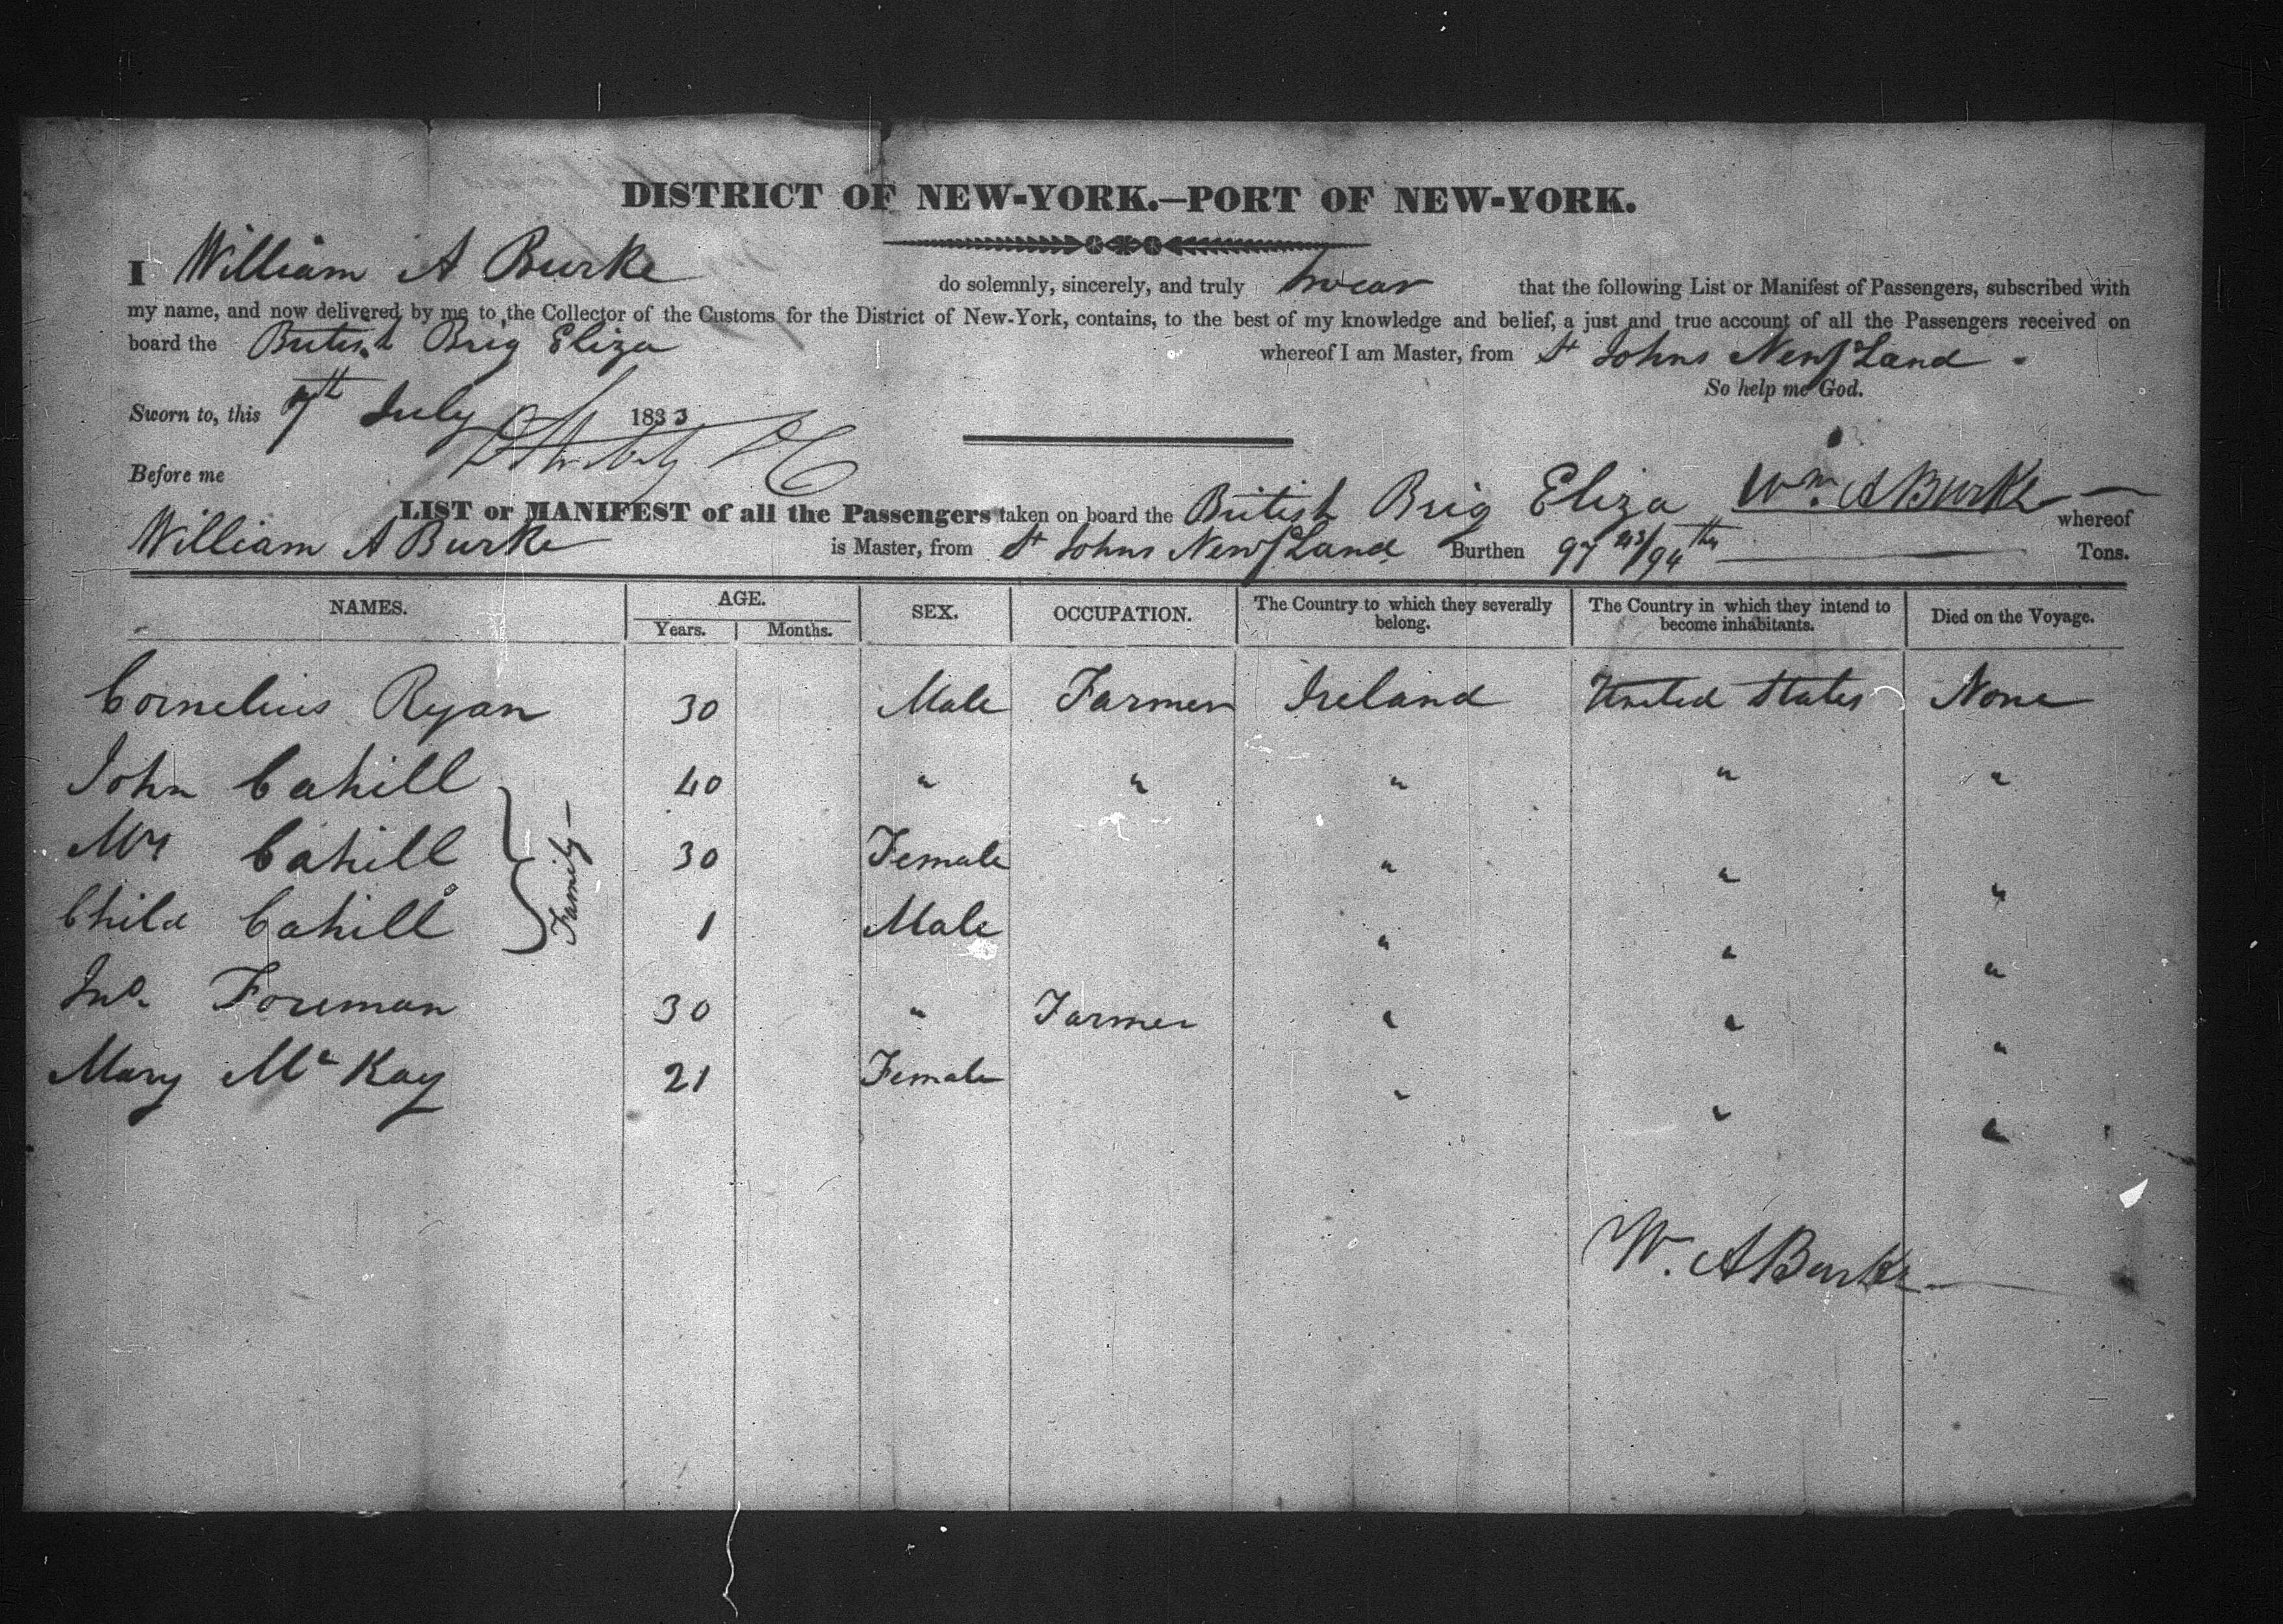 DISTRICT OF NEW-YORK.—PORT OF NEW-YORK.
I William A Burke do solemnly, sincerely, and truly Swear that the following List or Manifest of Passengers, subscribed with
my name, and now delivered by me to the Collector of the Customs for the District of New-York, contains, to the best of my knowledge and belief, a just and true account of all the Passengers received on
board the British Brig Eliza whereof I am Master, from St Johns Newfland
So help me God.
Sworn to, this 7th July 1833
Before me
Wm. A Burke
LIST or MANIFEST of all the Passengers taken on board the British Brig Eliza whereof
William A Burke is Master, from St Johns Newfland Burthen 97 43/94ths Tons.
NAMES. AGE. Years. Months. SEX. OCCUPATION. The Country to which they severally belong. The Country in which they intend to become inhabitants. Died on the Voyage.
Cornelius Ryan 30 Male Farmer Ireland United States None
John Cahill 40 " " " " "
Mrs Cahill 30 Female " " "
Child Cahill 1 Male " " "
Family
Jno. Foreman 30 " Farmer " " "
Mary Mc Kay 21 Female " " "
W. A Burke